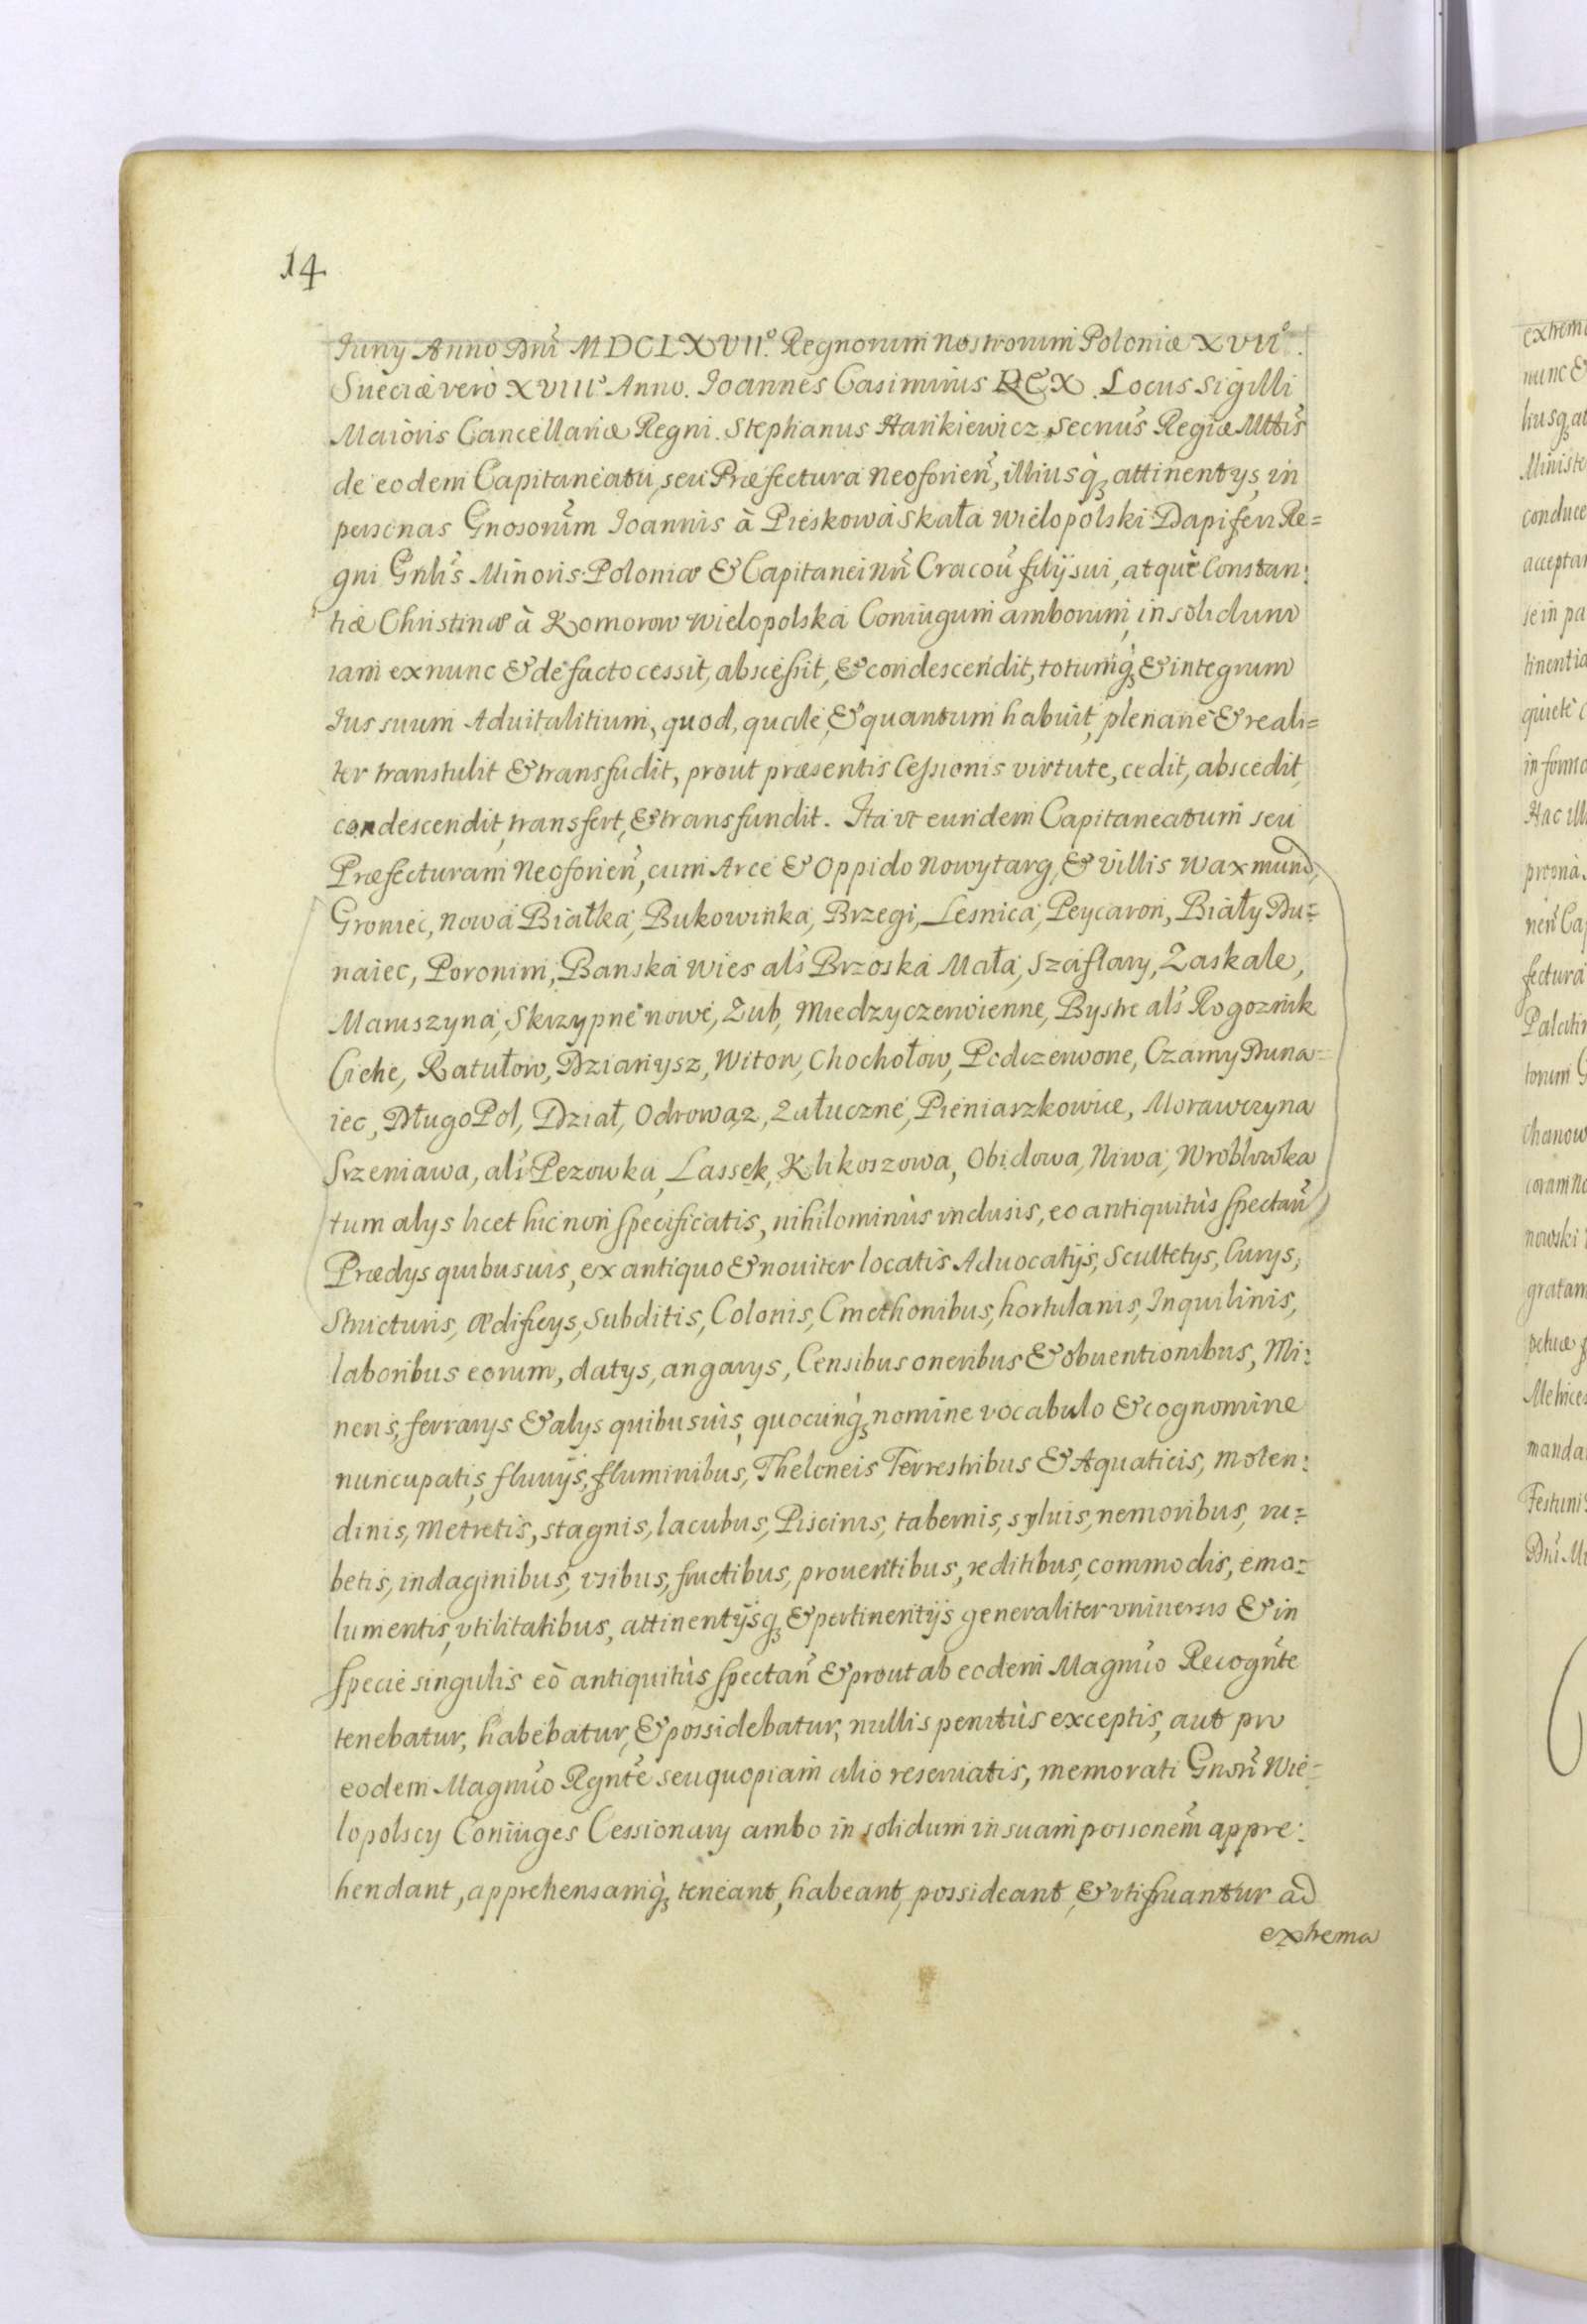 14
Iuny Anno Dnī MDCLXVII.° Regnorum nostrorum Poloniæ XVII°.
Sueciæ verò XVIII° Anno. Ioannes Casimirus REX. Locus Sigilli
Maioris Cancellariæ Regni. Stephanus Hankiewicz Secrius Regiæ Mttis
de eodem Capitaneatu, seu Præfectura Neoforień, illiusq; attinentys, in
personas Gnosorum Ioannis à Pieskowa Skała Wielopolski Dapiferi Re=
gni Gnlis Minoris Poloniæ & Capitanei nri Cracoū filij sui, atque Constan:
tiæ Christinæ à Komorow Wielopolska Coniugum amborum, in solidum
iam ex nunc & de facto cessit, abscessit, & condescendit, totumq; & integrum
Ius suum Aduitalitium, quod, quale, & quantum habuit, plenarie & reali=
ter transtulit & transfudit, prout præsentis Cessionis virtute, cedit, abscedit,
condescendit, transfert, & transfundit. Ita vt eundem Capitaneatum seu
Præfecturam Neoforień, cum Arce & Oppido Nowytarg, & villis Waxmund,
Groniec, Nowa Białka, Bukowinka, Brzegi, Lesnica, Peycaron, Biały Du=
naiec, Poronim, Banska wies als Brzoska Mała, Szaflary, Zaskale,
Maruszyna, Skrzypne nowe, Zub, Miedzyczerwienne, Bystre als Rogoznik
Ciche, Ratułow, Dzianysz, Witow, Chochołow, Podczerwone, Czarny Duna=
iec, DługoPol, Dział, Odrowąz, Załuczne, Pieniaszkowice, Morawczyna
Srzeniawa, als Pezowka, Lassek, Klikoszowa, Obidowa, Niwa, Wroblowka
tum alys licet hic non specificatis, nihilominùs inclusis, eo antiquitùs spectań
Prædys quibusuis, ex antiquo & nouiter locatis Aduocatijs, Scultetys, Curys,
Structuris, ædificys, Subditis, Colonis, Cmethonibus, hortulanis, Inquilinis,
laboribus eorum, datys, angarys, Censibus oneribus & obuentionibus, Mi:
neris, ferrarys & alys quibusuis, quocunq; nomine vocabulo & cognomine
nuncupatis, fluuijs, fluminibus, Theloneis Terrestribus & Aquaticis, molen:
dinis, metretis, stagnis, lacubus, Piscinis, tabernis, syluis, nemoribus, ru=
betis, indaginibus, vsibus, fructibus, prouentibus, reditibus, commodis, emo=
lumentis, vtilitatibus, attinentijsq; & pertinentijs generaliter vniuersis & in
specie singulis eò antiquitùs spectań & prout ab eodem Magnco Recognte
tenebatur, habebatur, & possidebatur, nullis penitùs exceptis, aut pro
eodem Magnco Rgnte seu quopiam alio reseruatis, memorati Gnsri Wie=
lopolscy Coniuges Cessionary ambo in solidum in suam possonem appre:
hendant, apprehensamq; teneant, habeant, possideant, & vtifruantur ad
extrema